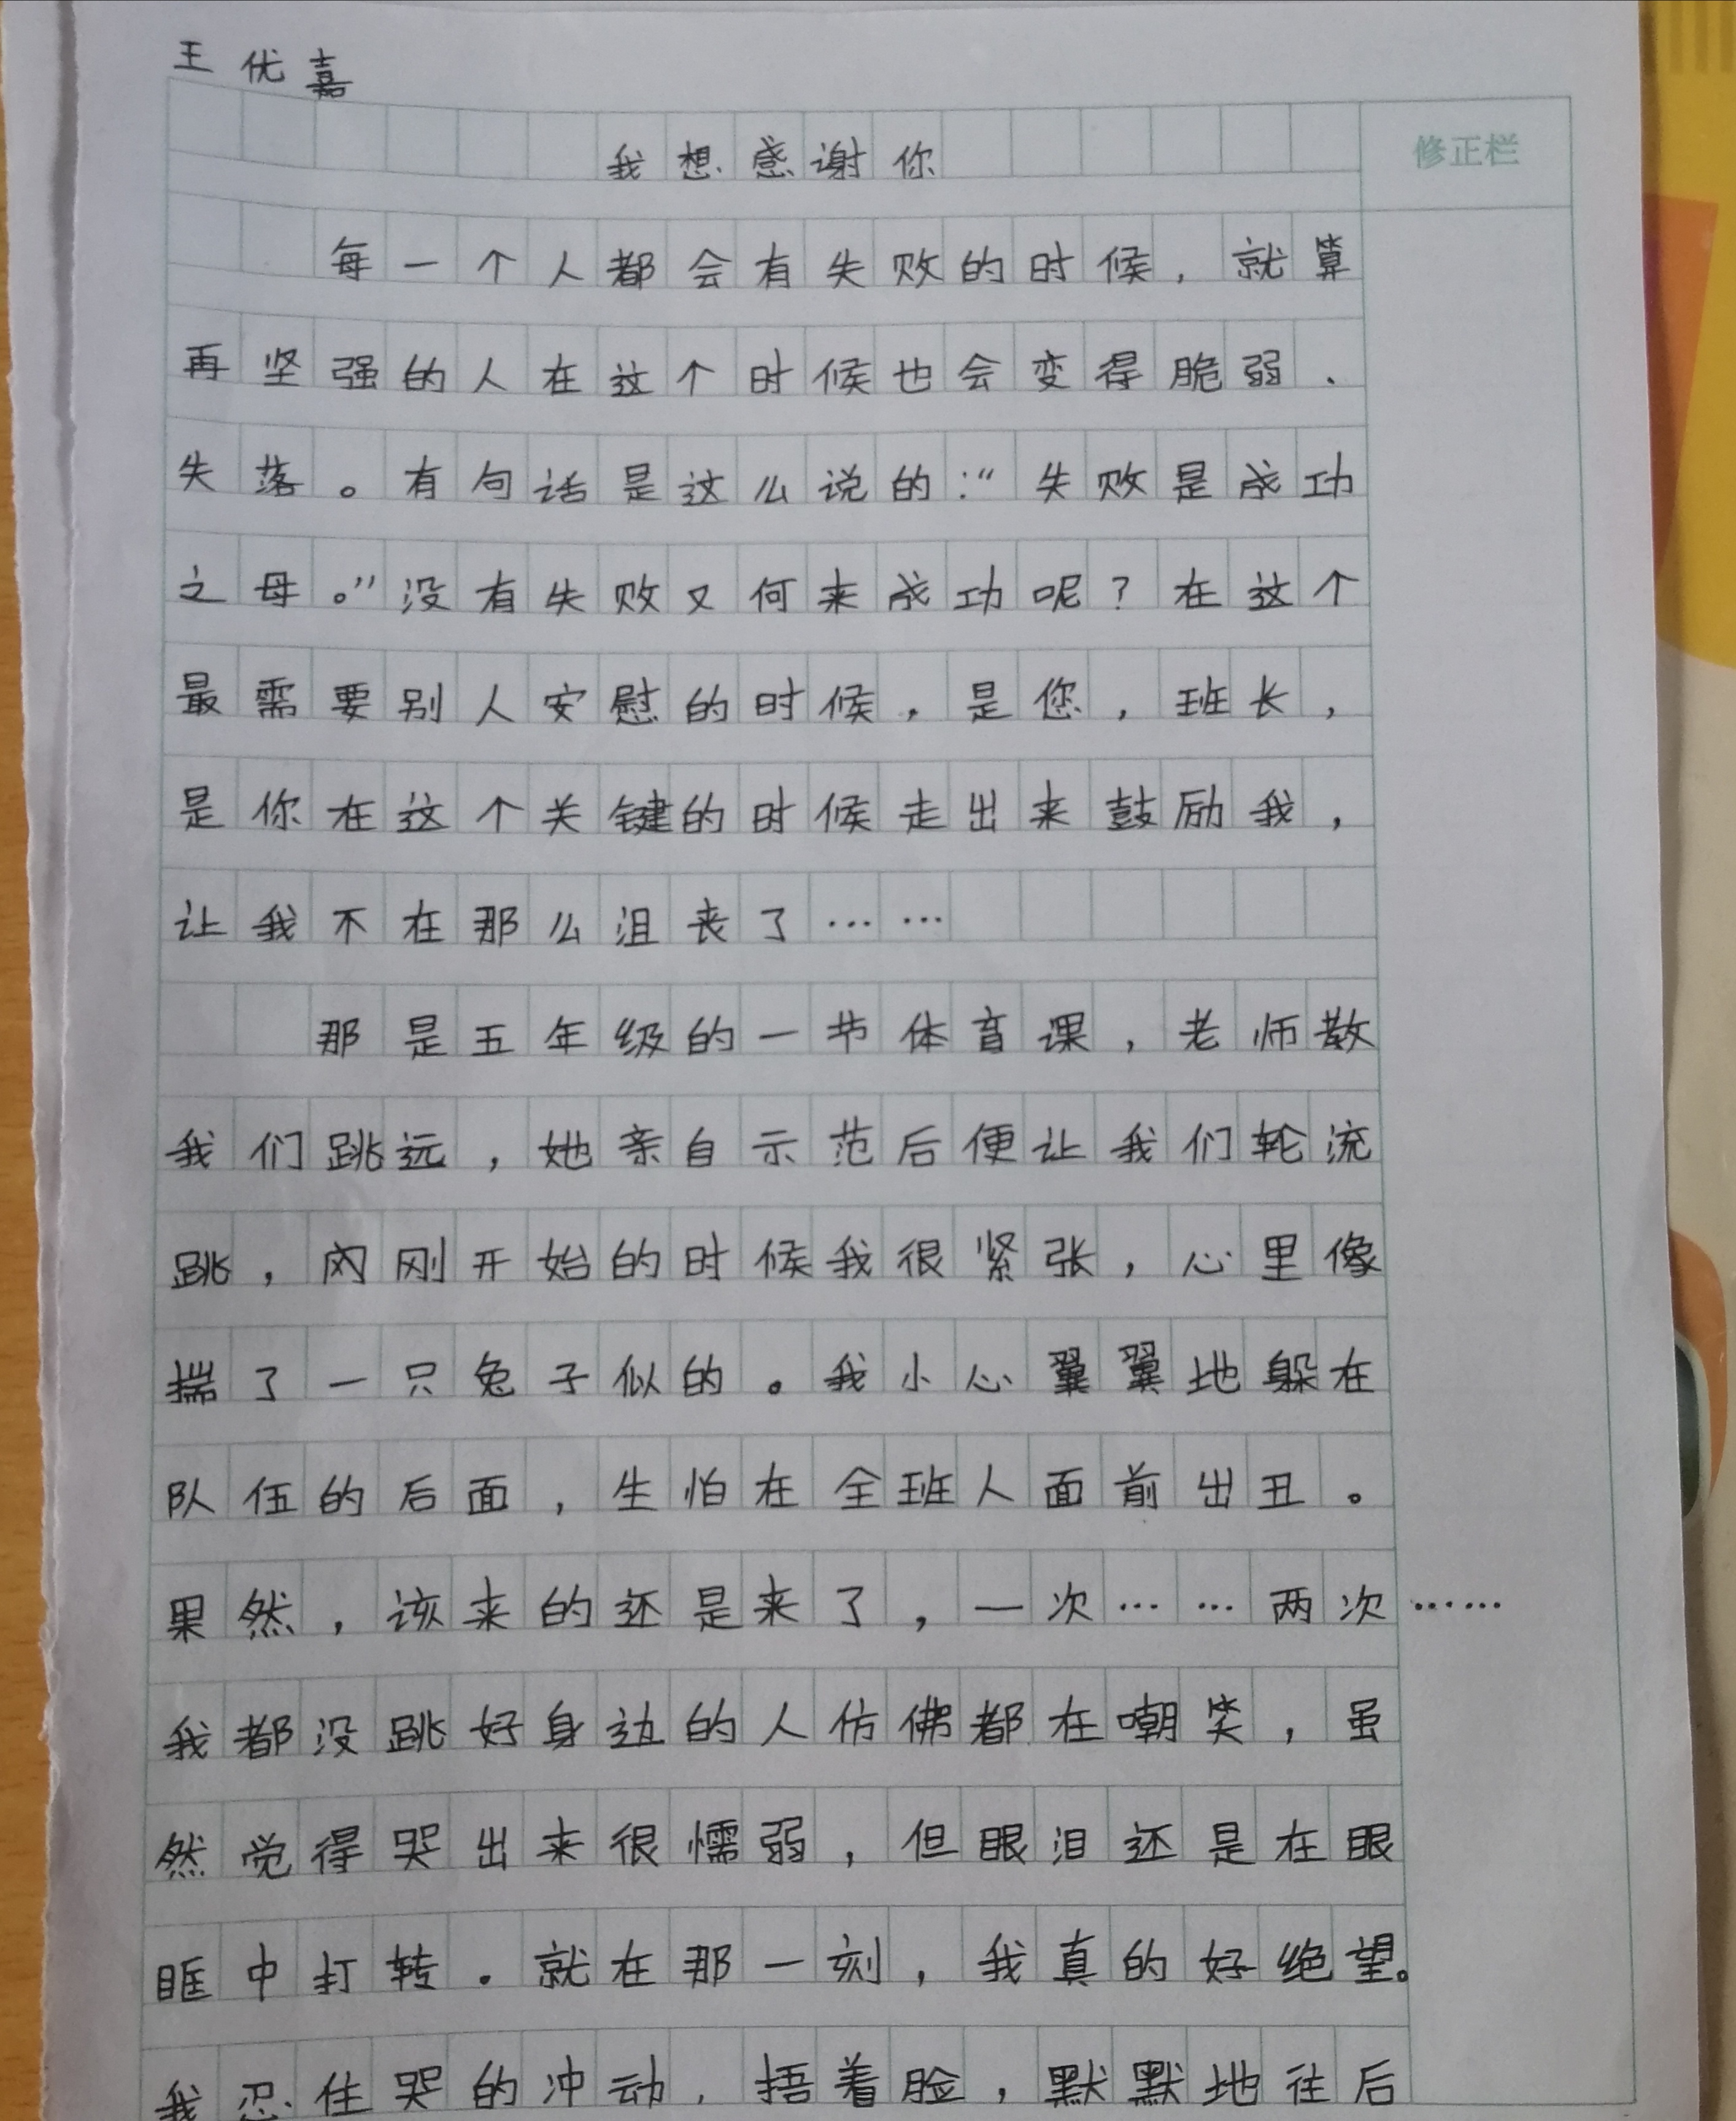 王优嘉
我想感谢你
修正栏
每一个人都会有失败的时候，就算
再坚强的人在这个时候也会变得脆弱、
失落。有句话是这么说的：“失败是成功
之母。”没有失败又何来成功呢？在这个
最需要别人安慰的时候，是您，班长，
是你在这个关键的时候走出来鼓励我，
让我不在那么沮丧了……
那是五年级的一节体育课，老师教
我们跳远，她亲自示范后便让我们轮流
跳，刚开始的时候我很紧张，心里像
揣了一只兔子似的。我小心翼翼地躲在
队伍的后面，生怕在全班人面前出丑。
果然，该来的还是来了，一次……两次……
我都没跳好身边的人仿佛都在嘲笑，虽
然觉得哭出来很懦弱，但眼泪还是在眼
眶中打转。就在那一刻，我真的好绝望。
我忍住哭的冲动，捂着脸，默默地往后